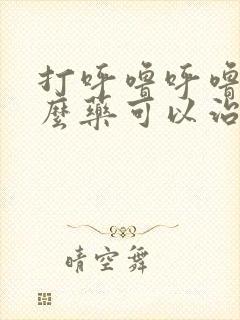 打呼噜呼噜
麼藥可以治
晴空舞